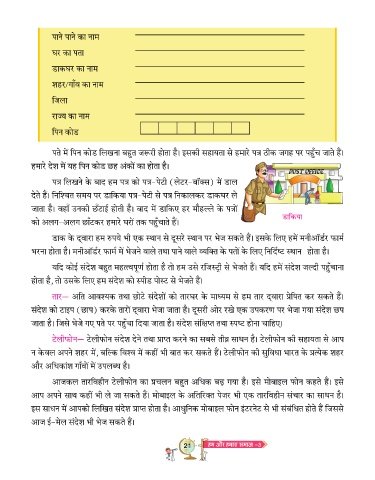 पाने पाने का नाम
घर का पता
डाकघर का नाम
शहर/गाँव का नाम
जिला
राज्य का नाम
पिन कोड
पते में पिन कोड लिखना बहुत जरूरी होता है। इसकी सहायता से हमारे पत्र ठीक जगह पर पहुँच जाते हैं।
हमारे देश में यह पिन कोड छह अंकों का होता है।
पत्र लिखने के बाद हम पत्र को पत्र-पेटी (लेटर-बॉक्स) में डाल
देते हैं। निश्चित समय पर डाकिया पत्र-पेटी से पत्र निकालकर डाकघर ले
जाता है। वहाँ उनकी छँटाई होती है। बाद में डाकिए हर मौहल्ले के पत्रों
को अलग-अलग छाँटकर हमारे घरों तक पहुँचाते हैं।
POST OFFICE
डाकिया
डाक के द्वारा हम रुपये भी एक स्थान से दूसरे स्थान पर भेज सकते हैं। इसके लिए हमें मनीऑर्डर फार्म
भरना होता है। मनीऑर्डर फार्म में भेजने वाले तथा पाने वाले व्यक्ति के पतों के लिए निर्दिष्ट स्थान होता है।
यदि कोई संदेश बहुत महत्त्वपूर्ण होता है तो हम उसे रजिस्ट्री से भेजते हैं। यदि हमें संदेश जल्दी पहुँचाना
होता है, तो उसके लिए हम संदेश को स्पीड पोस्ट से भेजते हैं।
तार— अति आवश्यक तथा छोटे संदेशों को तारघर के माध्यम से हम तार द्वारा प्रेषित कर सकते हैं।
संदेश को टाइप (छाप) करके तारों द्वारा भेजा जाता है। दूसरी ओर रखे एक उपकरण पर भेजा गया संदेश छप
जाता है। जिसे भेजे गए पते पर पहुँचा दिया जाता है। संदेश संक्षिप्त तथा स्पष्ट होना चाहिए।
टेलीफोन— टेलीफोन संदेश देने तथा प्राप्त करने का सबसे तीव्र साधन है। टेलीफोन की सहायता से आप
न केवल अपने शहर में, बल्कि विश्व में कहीं भी बात कर सकते हैं। टेलीफोन की सुविधा भारत के प्रत्येक शहर
और अधिकांश गाँवों में उपलब्ध है।
आजकल तारविहीन टेलीफोन का प्रचलन बहुत अधिक बढ़ गया है। इसे मोबाइल फोन कहते हैं। इसे
आप अपने साथ कहीं भी ले जा सकते हैं। मोबाइल के अतिरिक्त पेजर भी एक तारविहीन संचार का साधन है।
इस साधन में आपको लिखित संदेश प्राप्त होता है। आधुनिक मोबाइल फोन इंटरनेट से भी संबंधित होते हैं जिससे
आज ई-मेल संदेश भी भेज सकते हैं।
हम और हमारा समाज -3